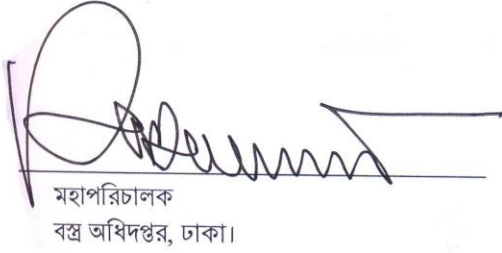 মহাপরিচালক
বস্ত্র অধিদপ্তর, ঢাকা।